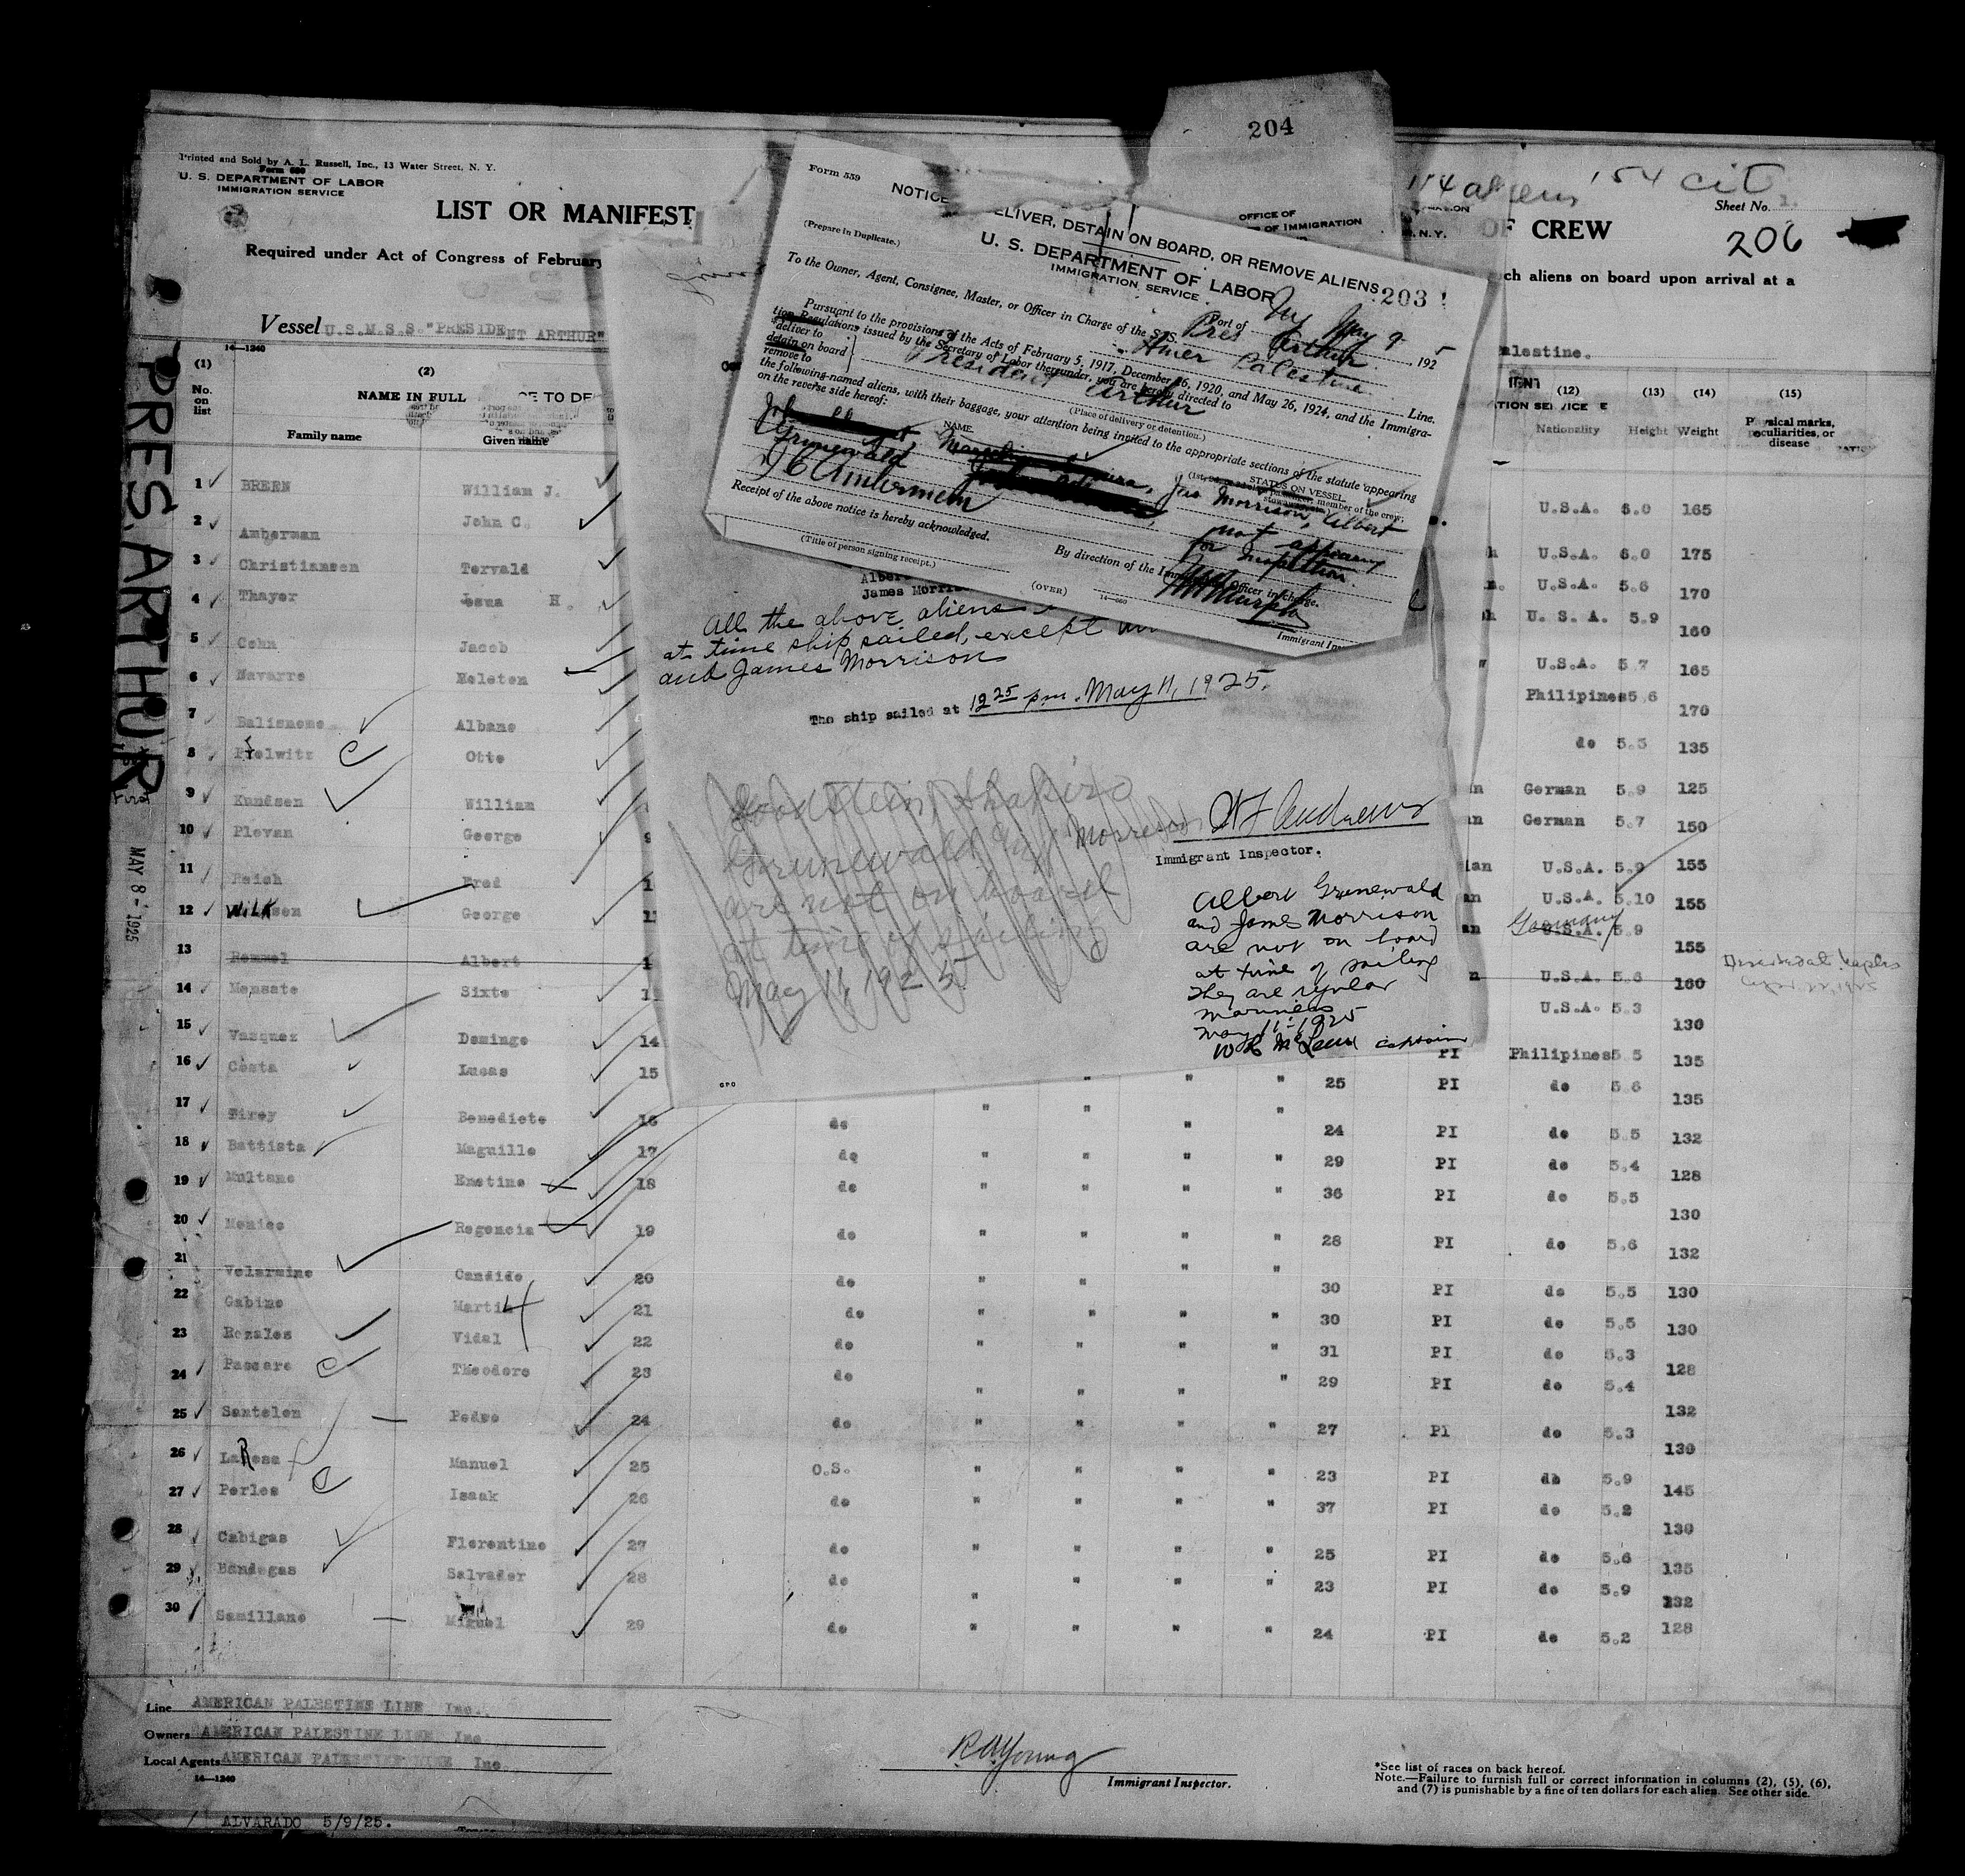 204
Printed and Sold by A. L. Russell, Inc., 13 Water Street, N. Y.
Form 680
U. S. DEPARTMENT OF LABOR
IMMIGRATION SERVICE
LIST OR MANIFEST
OF CREW
174 aliens 154 cit
Sheet No. 1.
206
Required under Act of Congress of February
ch aliens on board upon arrival at a
Vessel U.S.M.S.S. "PRESIDENT ARTHUR"
alestine.
PRES. ARTHUR
MAY 8 - 1925
14—1240
OFFICE OF
OF IMMIGRATION
N.Y.
Form 559
NOTICE
ELIVER, DETAIN ON BOARD, OR REMOVE ALIENS
203
(Prepare in Duplicate.)
U. S. DEPARTMENT OF LABOR
IMMIGRATION SERVICE
Port of NY May 9, 1925
To the Owner, Agent, Consignee, Master, or Officer in Charge of the S.S. Pres Arthur
Amer Palestine Line.
Pursuant to the provisions of the Acts of February 5, 1917, December 26, 1920, and May 26, 1924, and the Immigra-
tion Regulations issued by the Secretary of Labor thereunder, you are hereby directed to
deliver to
detain on board
remove to
President Arthur
(Place of delivery or detention.)
the following-named aliens, with their baggage, your attention being invited to the appropriate sections of the statute appearing
on the reverse side hereof:
NAME.
STATUS ON VESSEL
Jas Morrison, Albert
Grunewald
not appearing
for inspection
Receipt of the above notice is hereby acknowledged.
By direction of the Immigration Officer in charge.
(Title of person signing receipt.)
(OVER)
Immigrant Ins
Alber
James Morris
All the above aliens
at time ship sailed, except
and James Morrison
The ship sailed at 12 25 pm. May 11, 1925.
Goodstein, Shapiro
Grunewald Morrison
are not on board
at time of sailing
May 11, 1925
Andrews
Immigrant Inspector.
Albert Grunewald
and James Morrison
are not on board
at time of sailing
They are regular
mariners
May 11 - 1925
captain
GPO
(1) No. on list
(2) NAME IN FULL
Family name
Given name
(12) Nationality
(13) Height
(14) Weight
(15) Physical marks, peculiarities, or disease
1 BREEN William J. U.S.A. 6.0 165
2 Amberman John C. U.S.A. 6.0 175
3 Christiansen Torvald U.S.A. 5.6 170
4 Thayer H. U. S. A. 5.9 160
5 Cohn Jacob U.S.A. 5.7 165
6 Navarro Philipines 5.6 170
7 Albano do 5.5 135
8 Otto German 5.9 125
9 Kundsen William German 5.7 150
10 Plovan George U.S.A. 5.9 155
11 Reich Fred U.S.A. 5.10 155
12 Wilk George U.S.A. Germany 5.9 155
13 Rommel Albert U.S.A. 5.6 160 Deserted at Naples
14 Mensate Sixto U.S.A. 5.3 130
15 Vazquez Domingo 14 PI Philipines 5.5 135
16 Costa Lucas 15 " " " 25 PI do 5.6 135
17 Benedicto 16 do " " " 24 PI do 5.5 132
18 Battista Maguille 17 do " " " " 29 PI do 5.4 128
19 Multano Enstine 18 do " " " " 36 PI do 5.5 130
20 Regencia 19 do " " " " 28 PI do 5.6 132
21 Velarmino Candido 20 do " " " " 30 PI do 5.5 130
22 Gabino Martin 21 do " " " " 30 PI do 5.5 130
23 Rozales Vidal 22 do " " " " 31 PI do 5.3 128
24 Passaro Theodoro 23 do " " " 29 PI do 5.4 132
25 Santelon Pedro 24 do " " " " 27 PI do 5.3 130
26 LaRosa Manuel 25 O.S. " " " " 23 PI do 5.9 145
27 Perlos Isaak 26 do " " " " 37 PI do 5.2 130
28 Cabigas Florentino 27 do " " " " 25 PI do 5.6 135
29 Bandogas Salvador 28 do " " " " 23 PI do 5.9 132
30 Samillano Miguel 29 do " " " " 24 PI do 5.2 128
Line AMERICAN PALESTINE LINE Inc.
Owners AMERICAN PALESTINE LINE Inc
Local Agents AMERICAN PALESTINE LINE Inc.
14—1240
R A Young
Immigrant Inspector.
*See list of races on back hereof.
Note.—Failure to furnish full or correct information in columns (2), (5), (6),
and (7) is punishable by a fine of ten dollars for each alien. See other side.
ALVARADO 5/9/25.